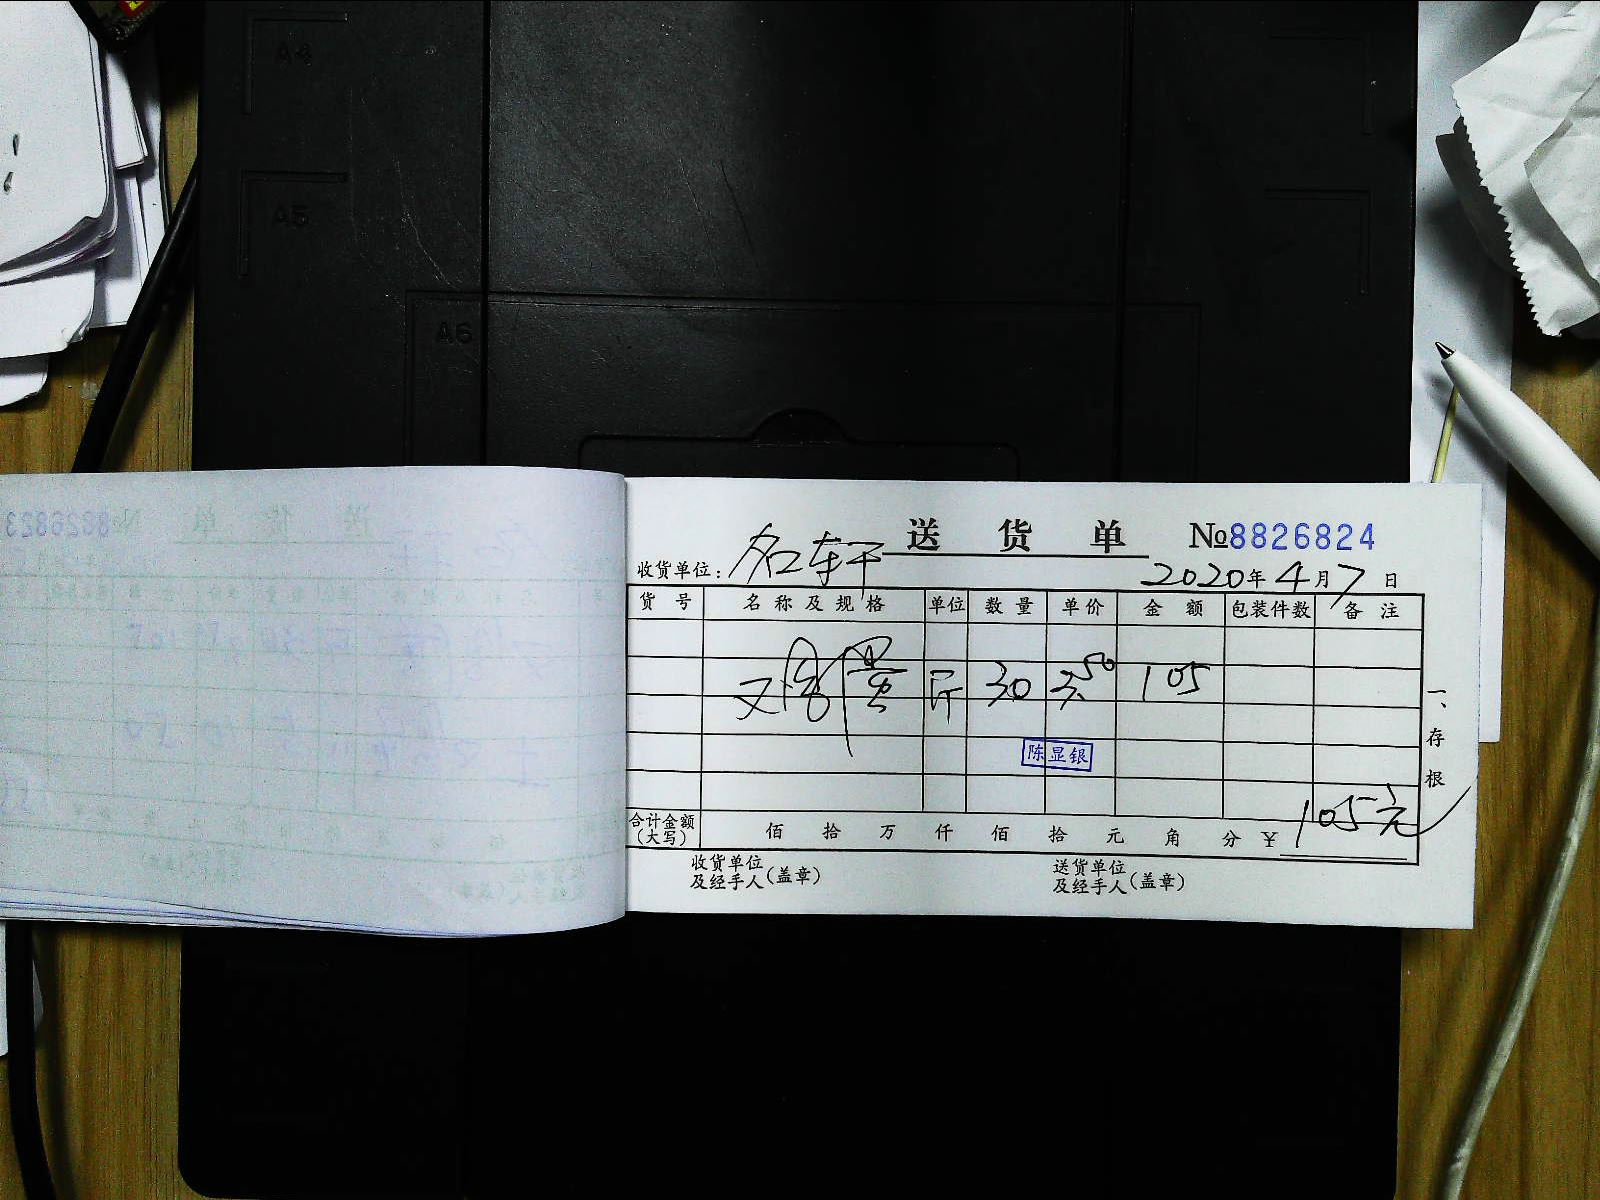 A4
A5
A6
送货单 №8826824
收货单位：名轩 2020年4月7日
货号 名称及规格 单位 数量 单价 金额 包装件数 备注
又鸡蛋 斤 30 3.50 105
陈显银
合计金额（大写） 佰 拾 万 仟 佰 拾 元 角 分 ¥ 105元
收货单位及经手人（盖章） 送货单位及经手人（盖章）
一、存根